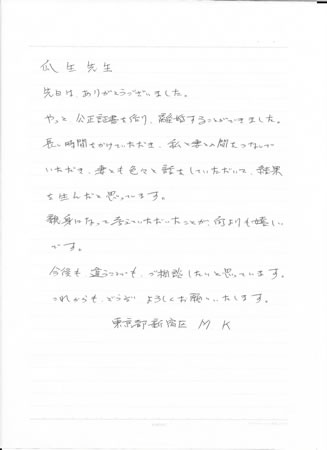 瓜生先生
先日は、ありがとうございました。
やっと公正証書を作り、離婚することができました。
長い時間をかけていただき、私と妻との間をつないで
いただき、妻とも色々と話をしていただいて、結果
を生んだと思っています。
親身になって考えていただいたことが、何よりも嬉しい
です。
今後も違うついても、ご相談したいと思っています。
これからも、どうぞよろしくお願いいたします。
東京都新宿区 M K